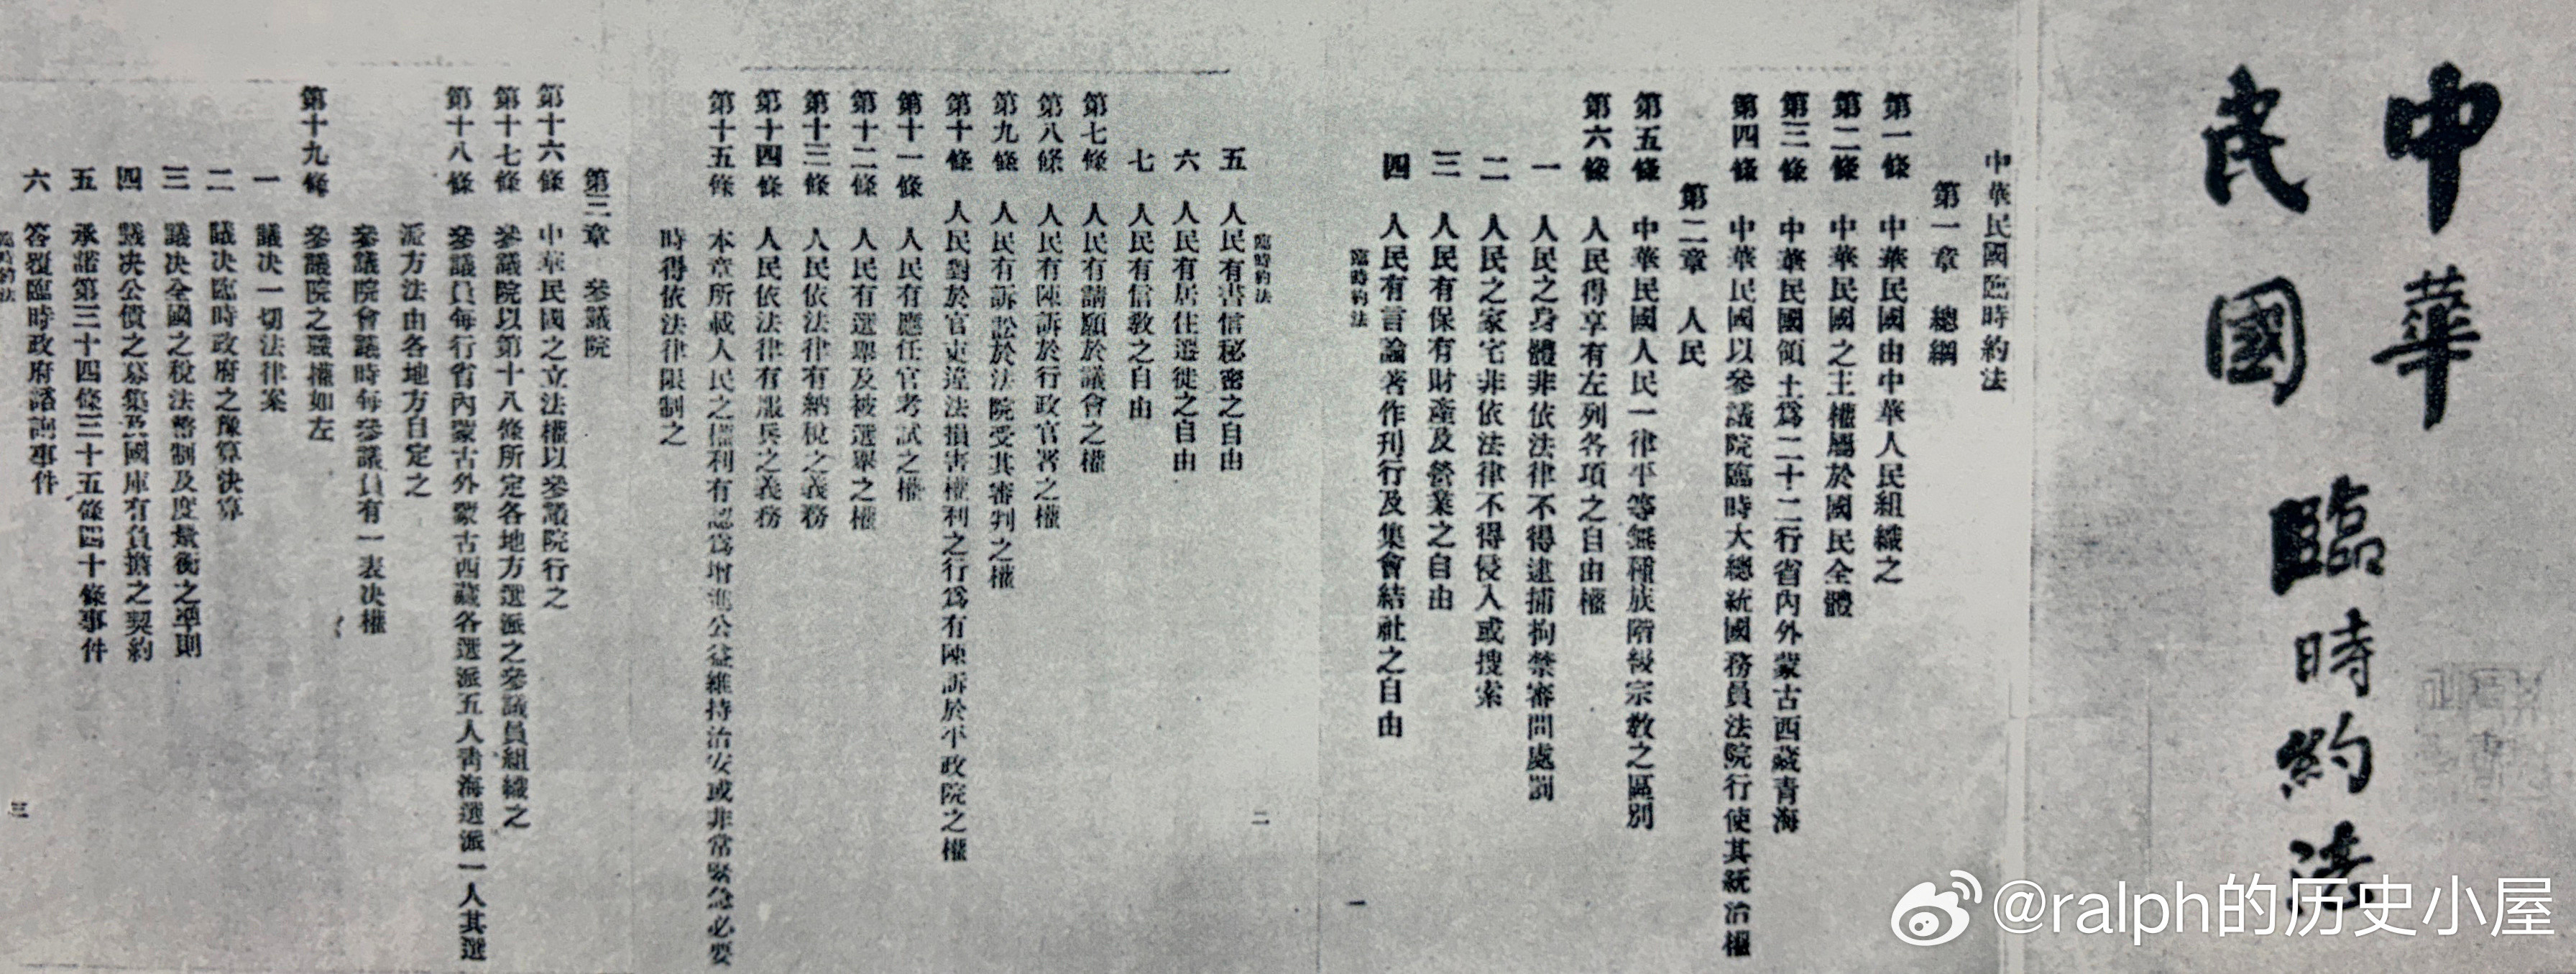 中華民國
臨時約法
中華民國臨時約法
第一章　總綱
第一條　中華民國由中華人民組織之
第二條　中華民國之主權屬於國民全體
第三條　中華民國領土爲二十二行省內外蒙古西藏青海
第四條　中華民國以參議院臨時大總統國務員法院行使其統治權
第二章　人民
第五條　中華民國人民一律平等無種族階級宗教之區別
第六條　人民得享有左列各項之自由權
一　人民之身體非依法律不得逮捕拘禁審問處罰
二　人民之家宅非依法律不得侵入或搜索
三　人民有保有財產及營業之自由
四　人民有言論著作刊行及集會結社之自由
臨時約法
一
臨時約法
二
五　人民有書信秘密之自由
六　人民有居住遷徙之自由
七　人民有信教之自由
第七條　人民有請願於議會之權
第八條　人民有陳訴於行政官署之權
第九條　人民有訴訟於法院受其審判之權
第十條　人民對於官吏違法損害權利之行爲有陳訴於平政院之權
第十一條　人民有應任官考試之權
第十二條　人民有選舉及被選舉之權
第十三條　人民依法律有納稅之義務
第十四條　人民依法律有服兵之義務
第十五條　本章所載人民之權利有認爲增進公益維持治安或非常緊急必要
時得依法律限制之
第三章　參議院
第十六條　中華民國之立法權以參議院行之
第十七條　參議院以第十八條所定各地方選派之參議員組織之
第十八條　參議員每行省內蒙古外蒙古西藏各選派五人青海選派一人其選
派方法由各地方自定之
參議院會議時每參議員有一表決權
第十九條　參議院之職權如左
一　議決一切法律案
二　議決臨時政府之豫算決算
三　議決全國之稅法幣制及度量衡之準則
四　議決公債之募集及國庫有負擔之契約
五　承諾第三十四條三十五條四十條事件
六　答覆臨時政府諮詢事件
臨時約法
三
@ralph的历史小屋